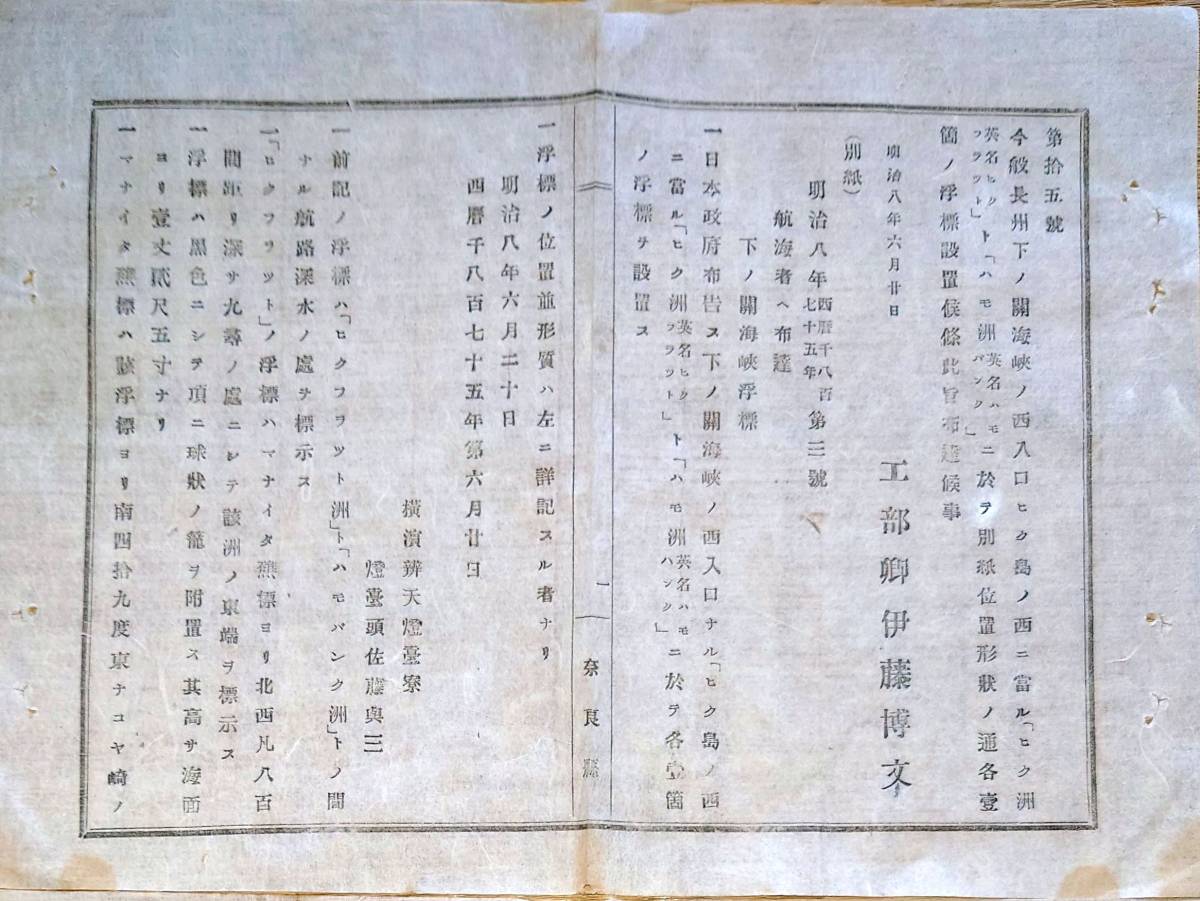 第拾五號
今般長州下ノ關海峽ノ西入口ヒク島ノ西ニ當ル「ヒク洲
英名ヒク
フラツト」ト「ハモ洲英名ハモ
バンク」ニ於テ別紙位置形狀ノ通各壹
箇ノ浮標設置候條此旨布達候事
明治八年六月廿日
工部卿伊藤博文
(別紙)
明治八年西曆千八百
七十五年第三號
航海者ヘ布達
下ノ關海峽浮標
一日本政府布告ス下ノ關海峽ノ西入口ナル「ヒク島ノ西
ニ當ル「ヒク洲英名ヒク
フラツト」ト「ハモ洲英名ハモ
バンク」ニ於テ各壹箇
ノ浮標ヲ設置ス
一
奈良縣
一浮標ノ位置並形質ハ左ニ詳記スル者ナリ
明治八年六月二十日
西曆千八百七十五年第六月廿日
橫濱辨天燈臺寮
燈臺頭佐藤與三
一前記ノ浮標ハ「ヒクフラツト洲」ト「ハモバンク洲」トノ間
ナル航路深水ノ處ヲ標示ス
一「ヒクフラツト」ノ浮標ハマナイタ礁標ヨリ北西凡八百
間距リ深サ九尋ノ處ニシテ該洲ノ東端ヲ標示ス
一浮標ハ黑色ニシテ頂ニ球狀ノ籠ヲ附置ス其高サ海面
ヨリ壹丈貳尺五寸ナリ
一マナイタ礁標ハ該浮標ヨリ南四拾九度東ナコヤ崎ノ